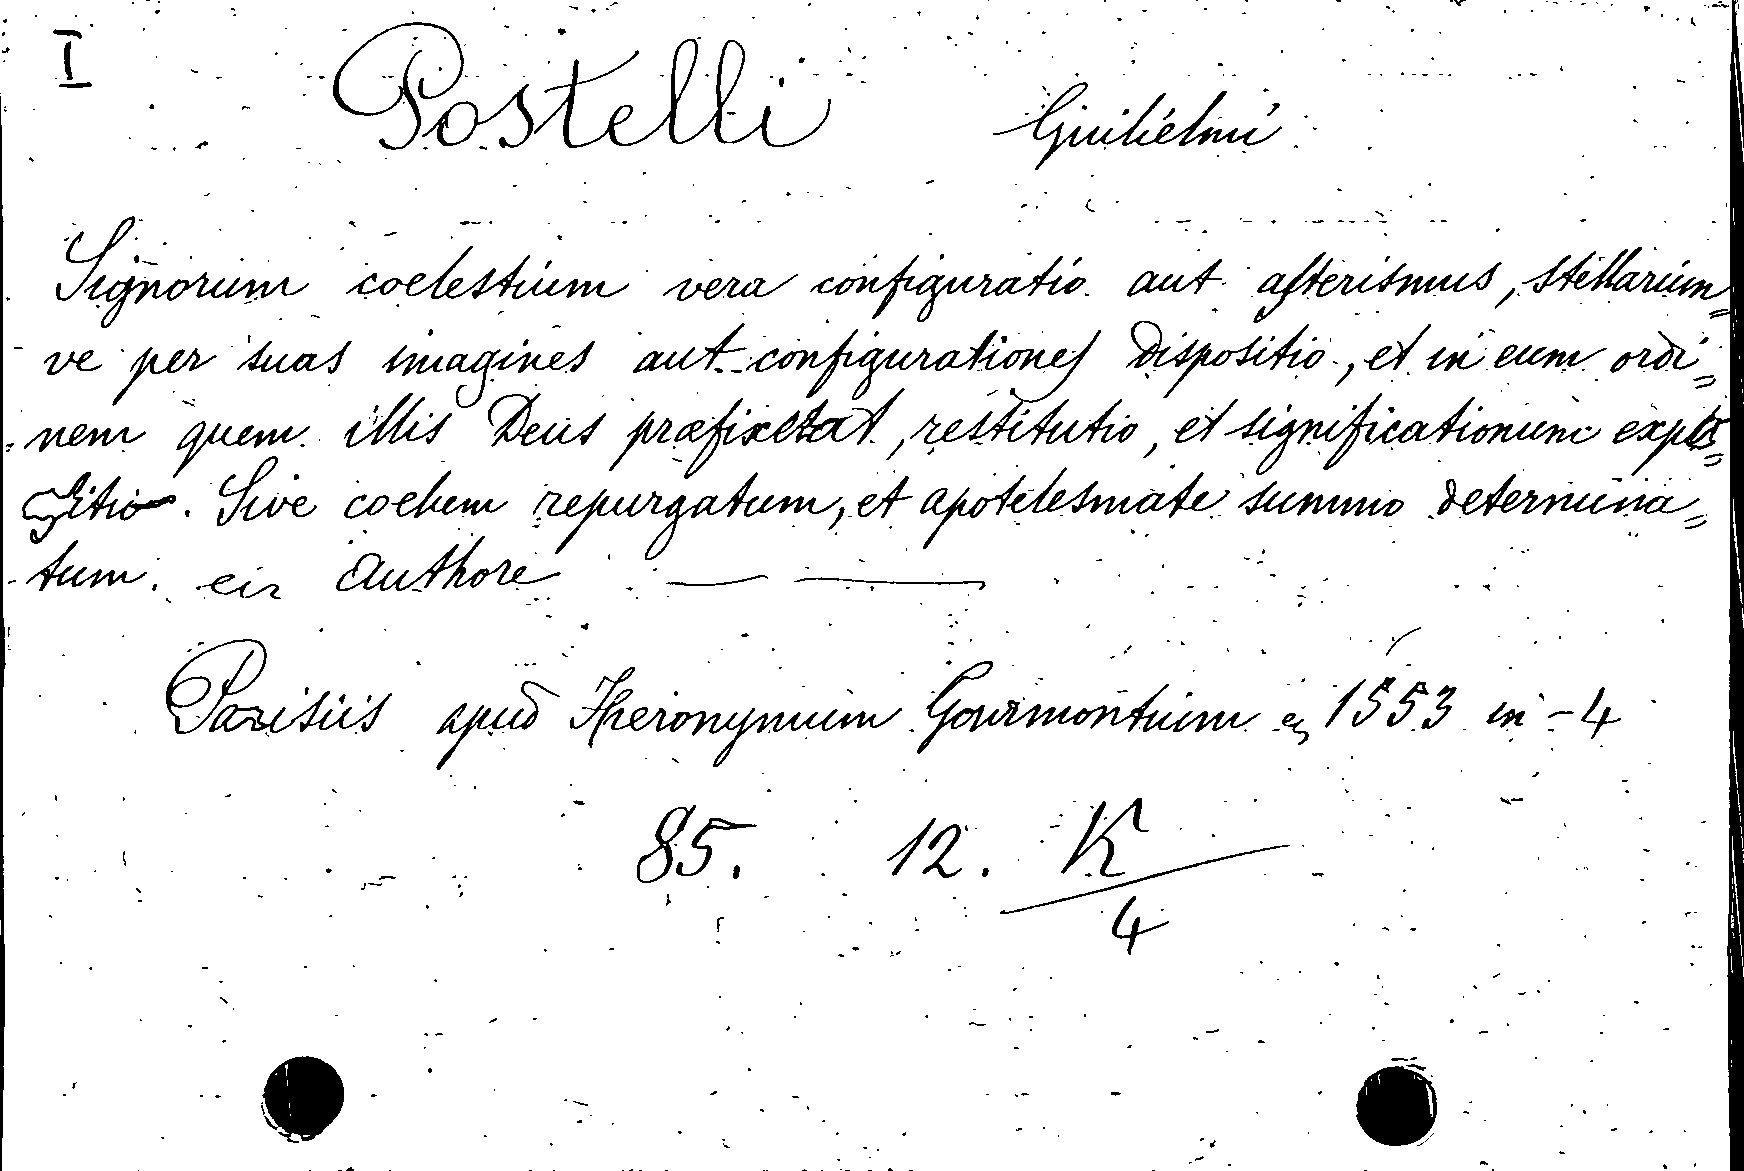 I Postelli Guilielmi
Signorum coelestium vera configuratio aut asterismus, stellarum=
ve per suas imagines aut configurationes dispositio, et in eum ordi=
nem quem illis Deus præfixerat, restitutio, et significationum expo=
sitio. Sive coelum repurgatum, et apotelesmate summo determina=
tum. eir Authore
Parisiis apud Hieronymum Gourmontium 1553 in-4
85. 12. K
4